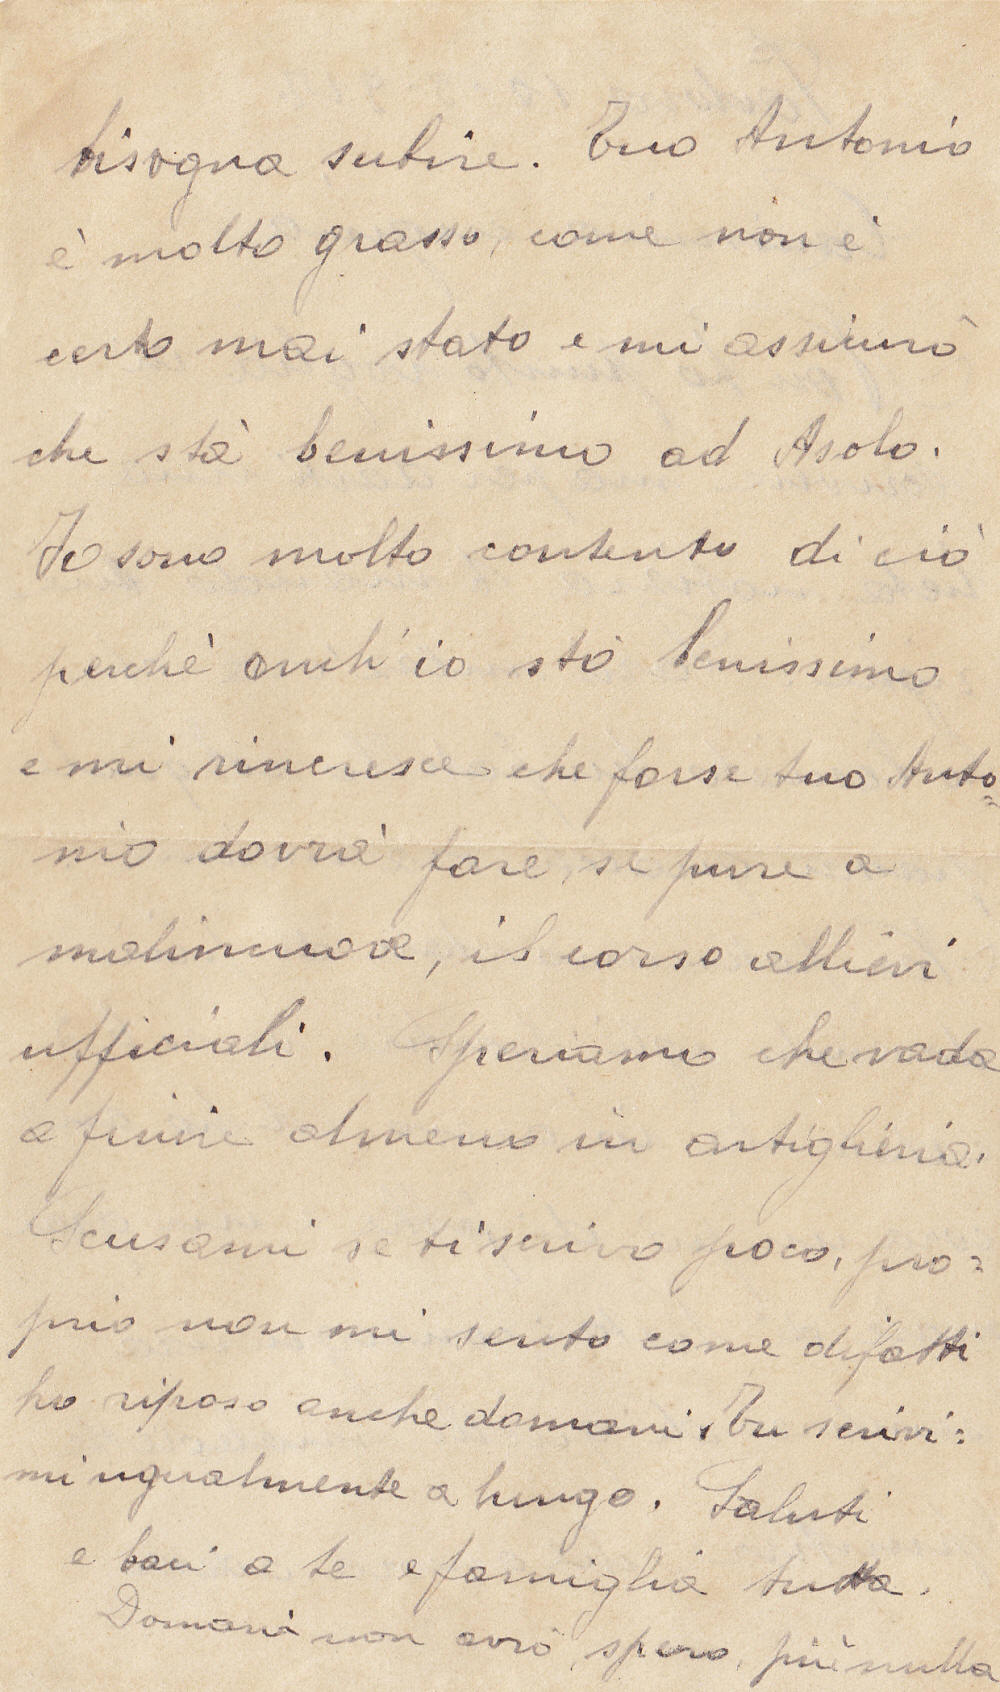 bisogna subire. Tuo Antonio
è molto grasso, come non è
certo mai stato e mi assicurò
che stà benissimo ad Asolo.
Io sono molto contento di ciò
perchè anch'io stò benissimo
e mi rincresce che forse tuo Anto=
nio dovrà fare, se pure a
malincuore, il corso allievi
ufficiali. Speriamo che vada
a finire almeno in artiglieria.
Scusami se ti scrivo poco, pro=
prio non mi sento come difatti
ho riposo anche domani. Tu scrivi=
mi ugualmente a lungo. Saluti
e baci a te e famiglia tutta.
Domani non avrò, spero, più nulla